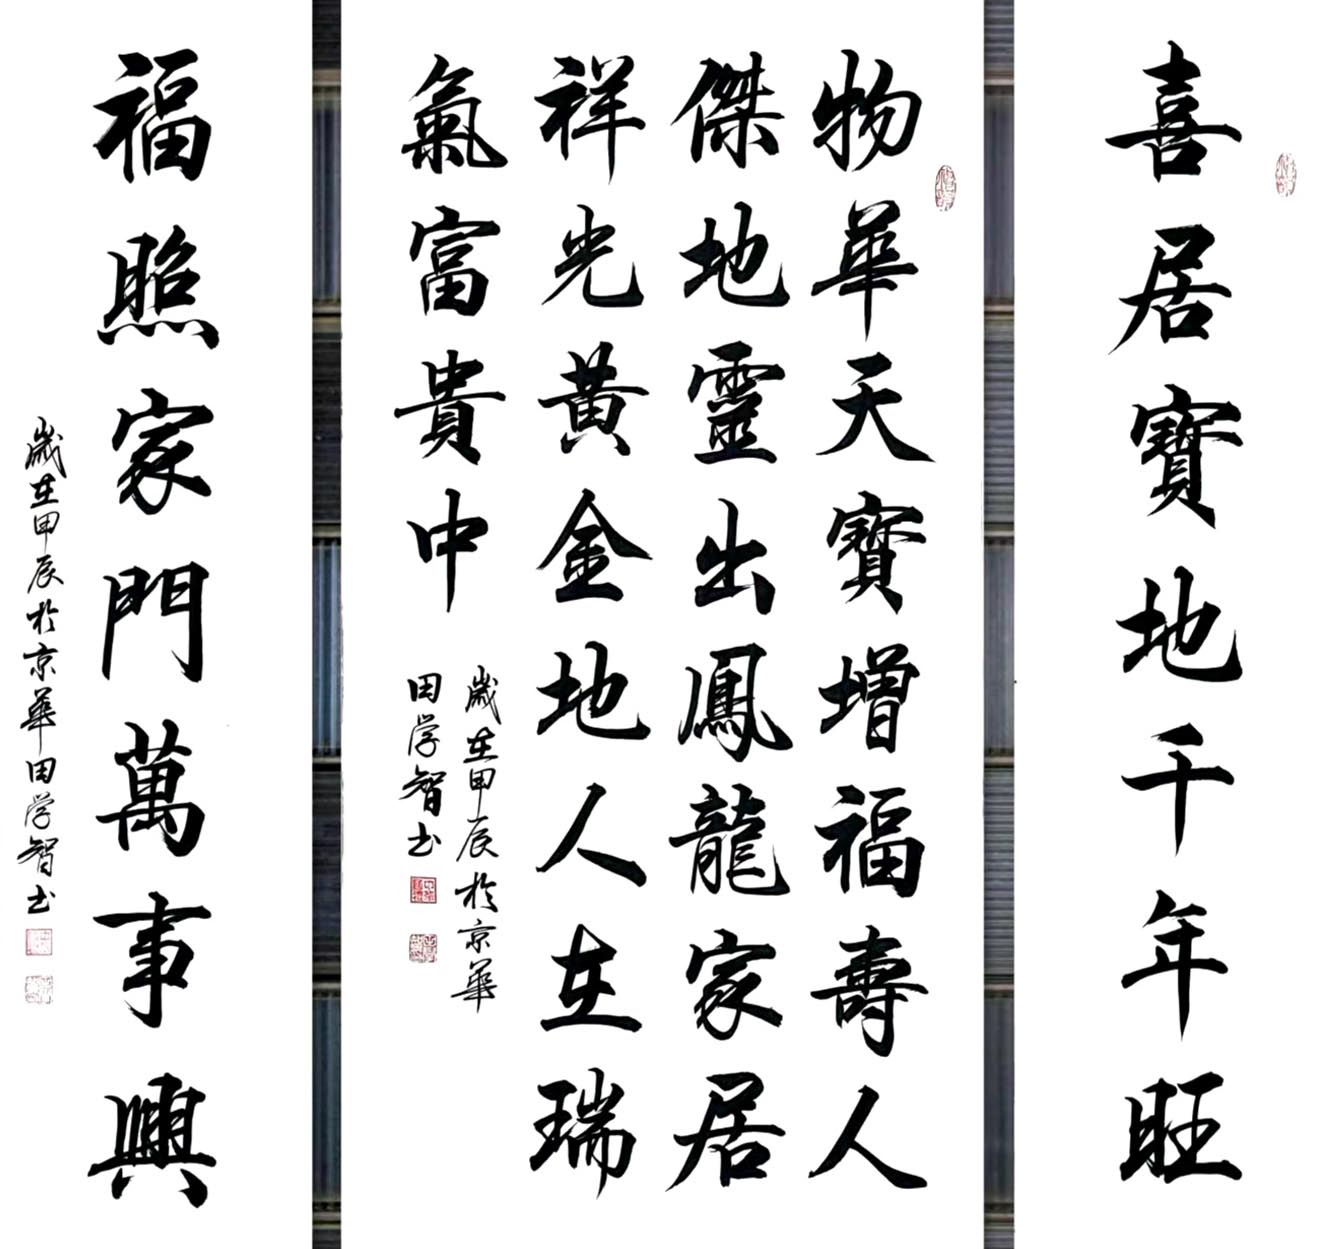 喜居寶地千年旺
物華天寶增福壽人
傑地靈出鳳龍家居
祥光黃金地人在瑞
氣富貴中
歲在甲辰於京華
田学智书
福照家門萬事興
歲在甲辰於京華田学智书